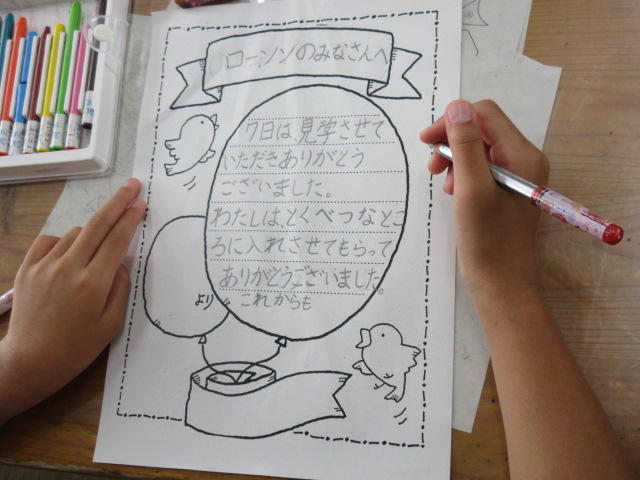 ローソンのみなさんへ
7日は、見学させて
いただきありがとう
ございました。
わたしは、とくべつなとこ
ろに入れさせてもらって
ありがとうございました。
これからも
より